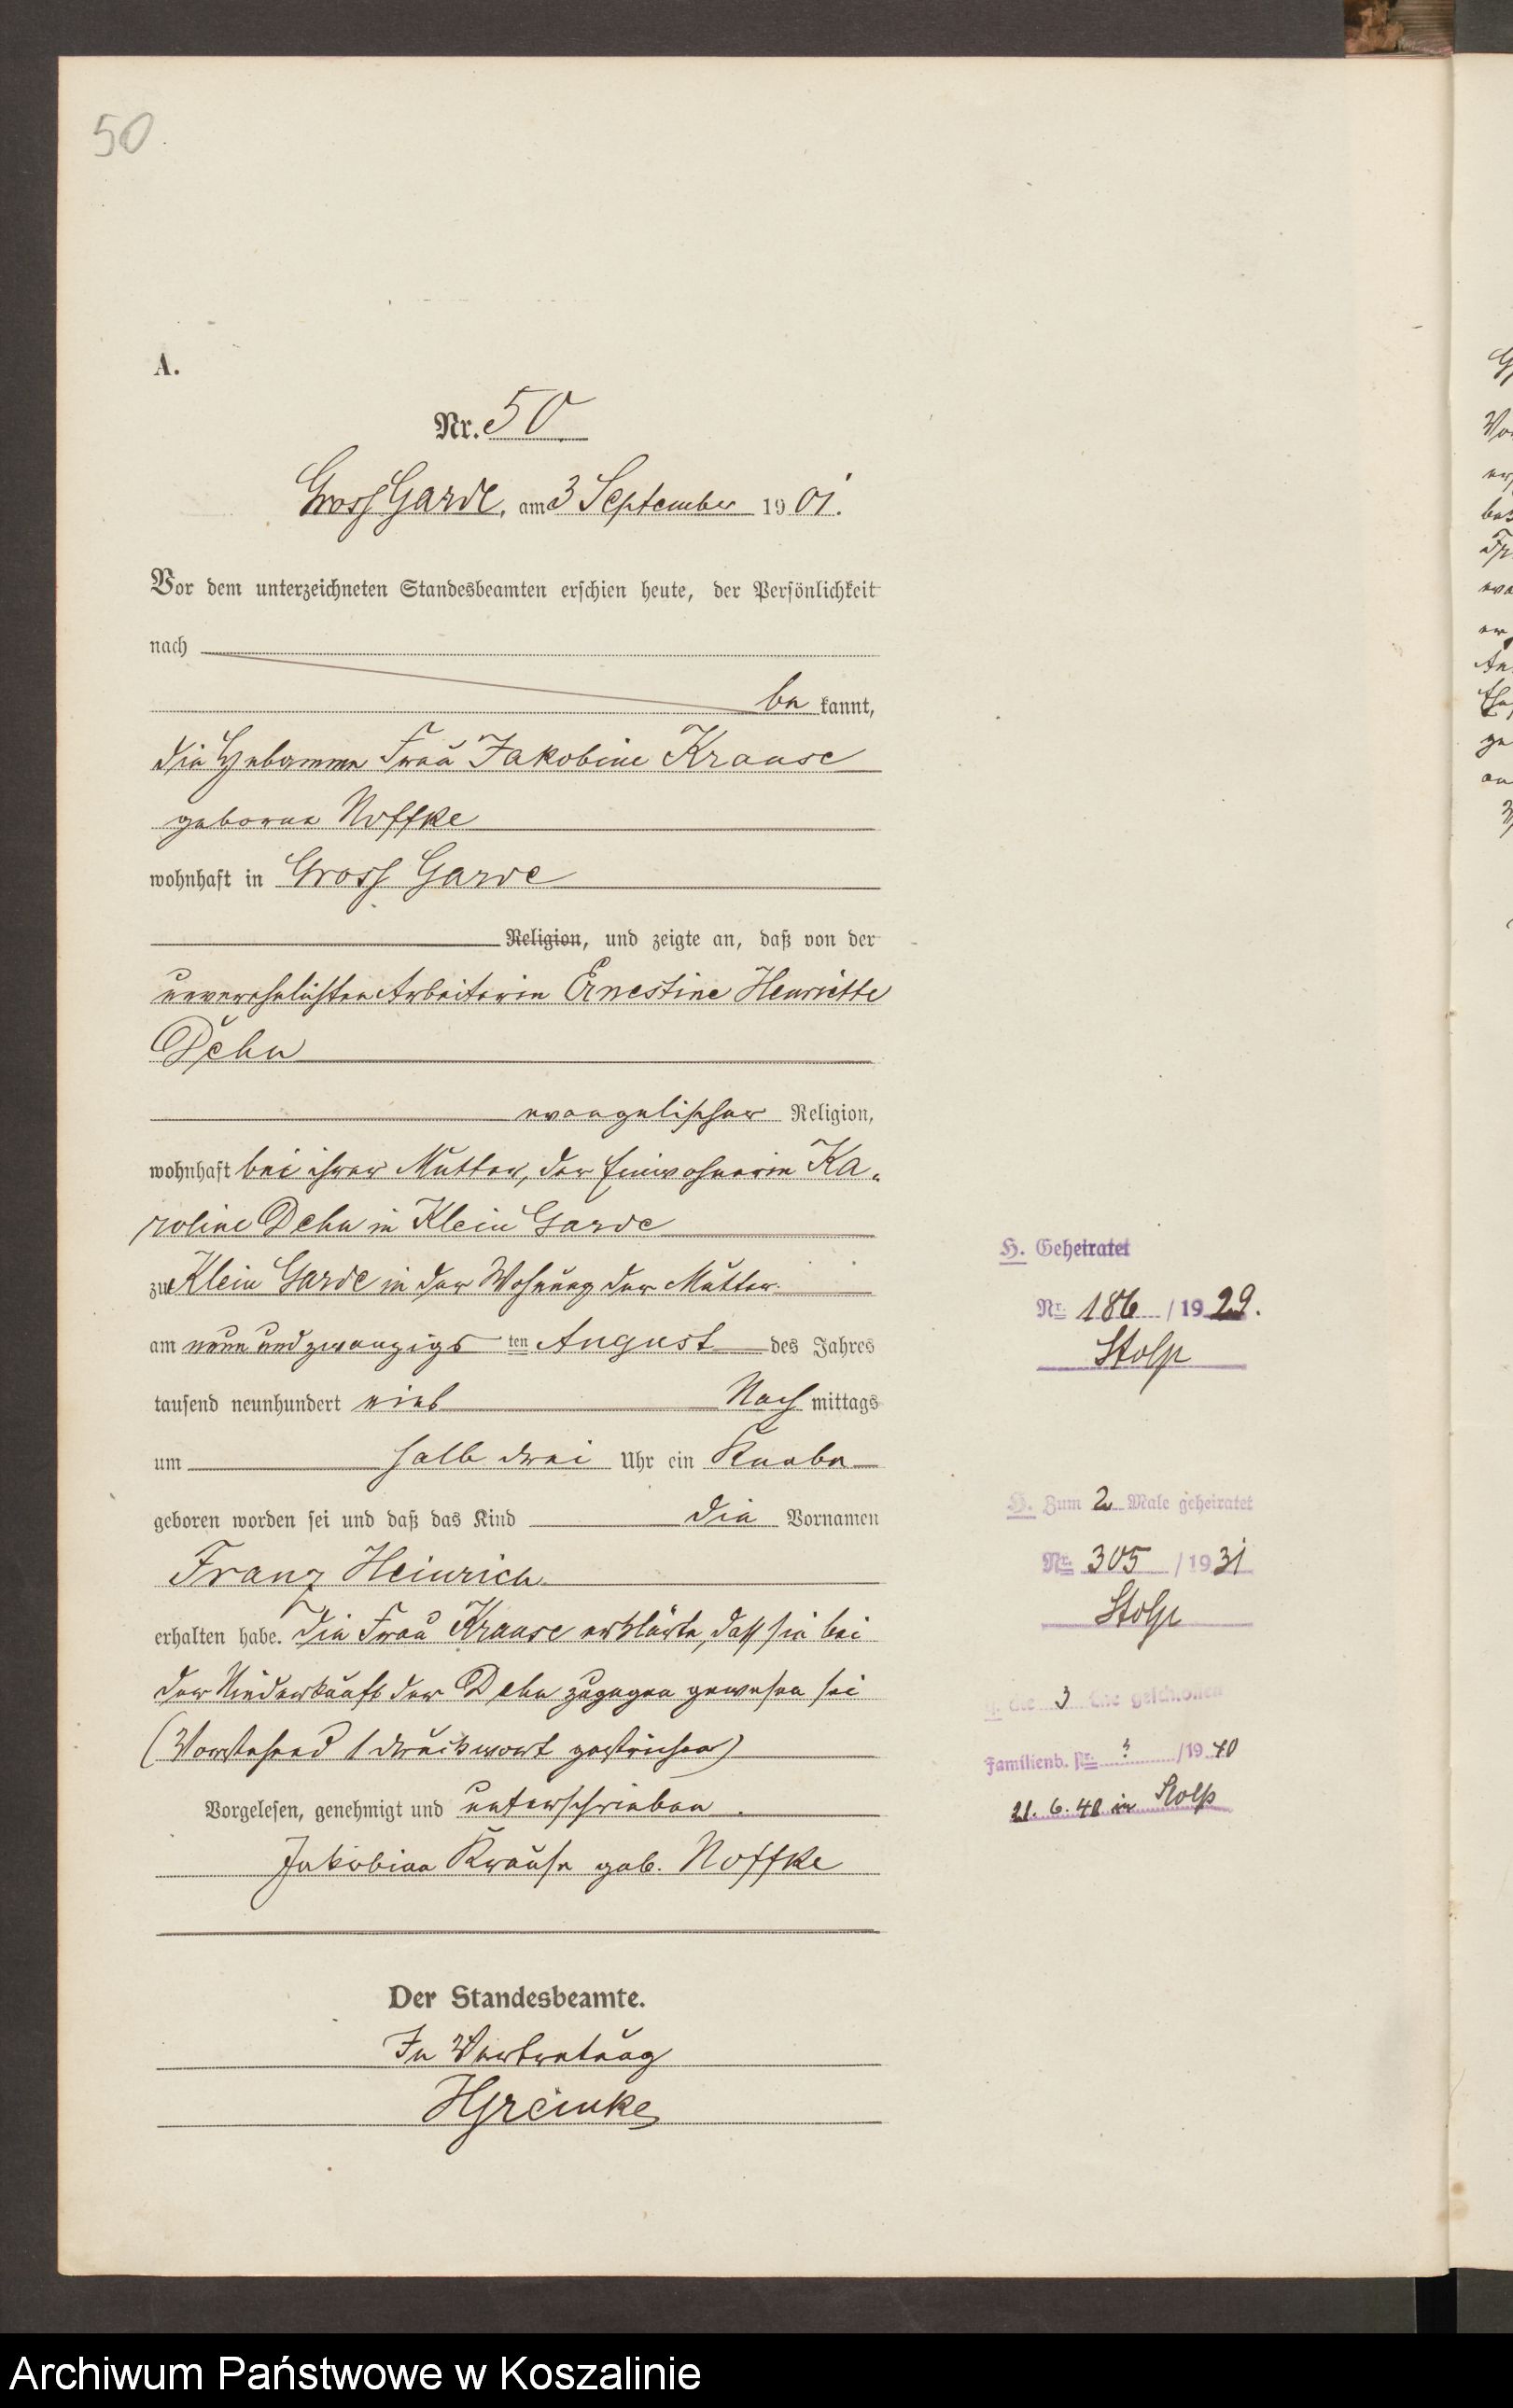 50
A.
Nr. 50
Gross Garde, am 3 September 1901.
Vor dem unterzeichneten Standesbeamten erschien heute, der Persönlichkeit
nach
be kannt,
die Hebamme Frau Jakobine Krause
geborne Noffke
wohnhaft in Gross Garde
Religion, und zeigte an, daß von der
unverehelichten Arbeiterin Ernestine Henriette
Dehn
evangelischer Religion,
wohnhaft bei ihrer Mutter, der Einwohnerin Ka-
roline Dehn in Klein Garde
zu Klein Garde in der Wohnung der Mutter
am neun und zwanzigs ten August des Jahres
tausend neunhundert eins Nach mittags
um halb drei Uhr ein Knabe
geboren worden sei und daß das Kind die Vornamen
Franz Heinrich
erhalten habe. Die Frau Krause erklärte, daß sie bei
der Niederkunft der Dehn zugegen gewesen sei
(Vorstehend 1 Druckwort gestrichen)
Vorgelesen, genehmigt und unterschrieben.
Jakobine Krause geb. Noffke
Der Standesbeamte.
In Vertretung
HGreinke
H. Geheiratet
Nr. 186 / 1929.
Stolp
H. Zum 2 Male geheiratet
Nr. 305 / 1931
Stolp
die 3 Ehe geschlossen
Familienb. Nr. ? / 1940
21. 6. 40 in Stolp
Archiwum Państwowe w Koszalinie